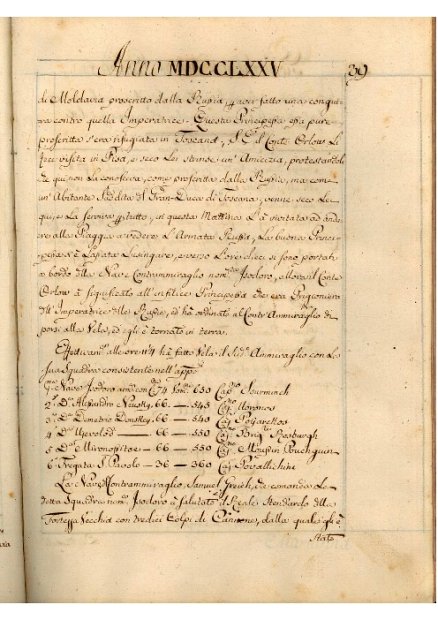 Anno MDCCLXXV 39
di Moldavia proscritto dalla Russia p aver fatto una congiu-
ra contro quella Imperatrice. Questa Principessa essa pure
proscritta s'era rifugiata in Toscana, S.E. il Conte Orlow Le
fece visita in Pisa, e seco Lei strinse un' Amicizia, protestandole
che qui non La conosceva, come proscritta dalla Russia, ma come
un' Abitante Suddita del Gran-Duca di Toscana, venne seco Lei
qui, e La servirà p tutto, in questa Mattina L'à invitata ad anda-
re alla Piaggia a vedere L'Armata Russa, La buona Princi-
pessa s'è Lasciata Lusingare, e verso L'ore dieci si sono portati
a bordo della Nave Contrammiraglio nom.ta Isodoro, allora il Conte
Orlow à significato all' infelice Principessa che era Prigioniera
dell' Imperatrice della Russia, ed hà ordinato al Contr'Ammiraglio di
porsi alla Vela, ed egli è tornato in terra.
Effettivam.e alle ore 4 hà fatto Vela il Sud.o Ammiraglio con La
sua Squadra consistente nell' app.o
Nave Isodoro arm. con C. 74 Uom. 650 Cap.no Sourmineh
2.a D.a Alessandro Neusky. 66 — 545 Moronos
3.a D.a Demetrio Donskoy. 66 — 540 Poyarettos
4.a D.a — 66 — 550 Brig.e Rosburgh
5.a D.a Mironossitze — 66 — 550 Moussin Pouchquin
6.a Fregata S. Paolo — 36 — 360 Povallichine
La Nave Contrammiraglio Samuel Greich, che comanda La
detta Squadra nom.ta Isodoro à salutato il Reale Stendardo della
Fortezza Vecchia con tredici Colpi di Cannone, dalla quale gli è
stato